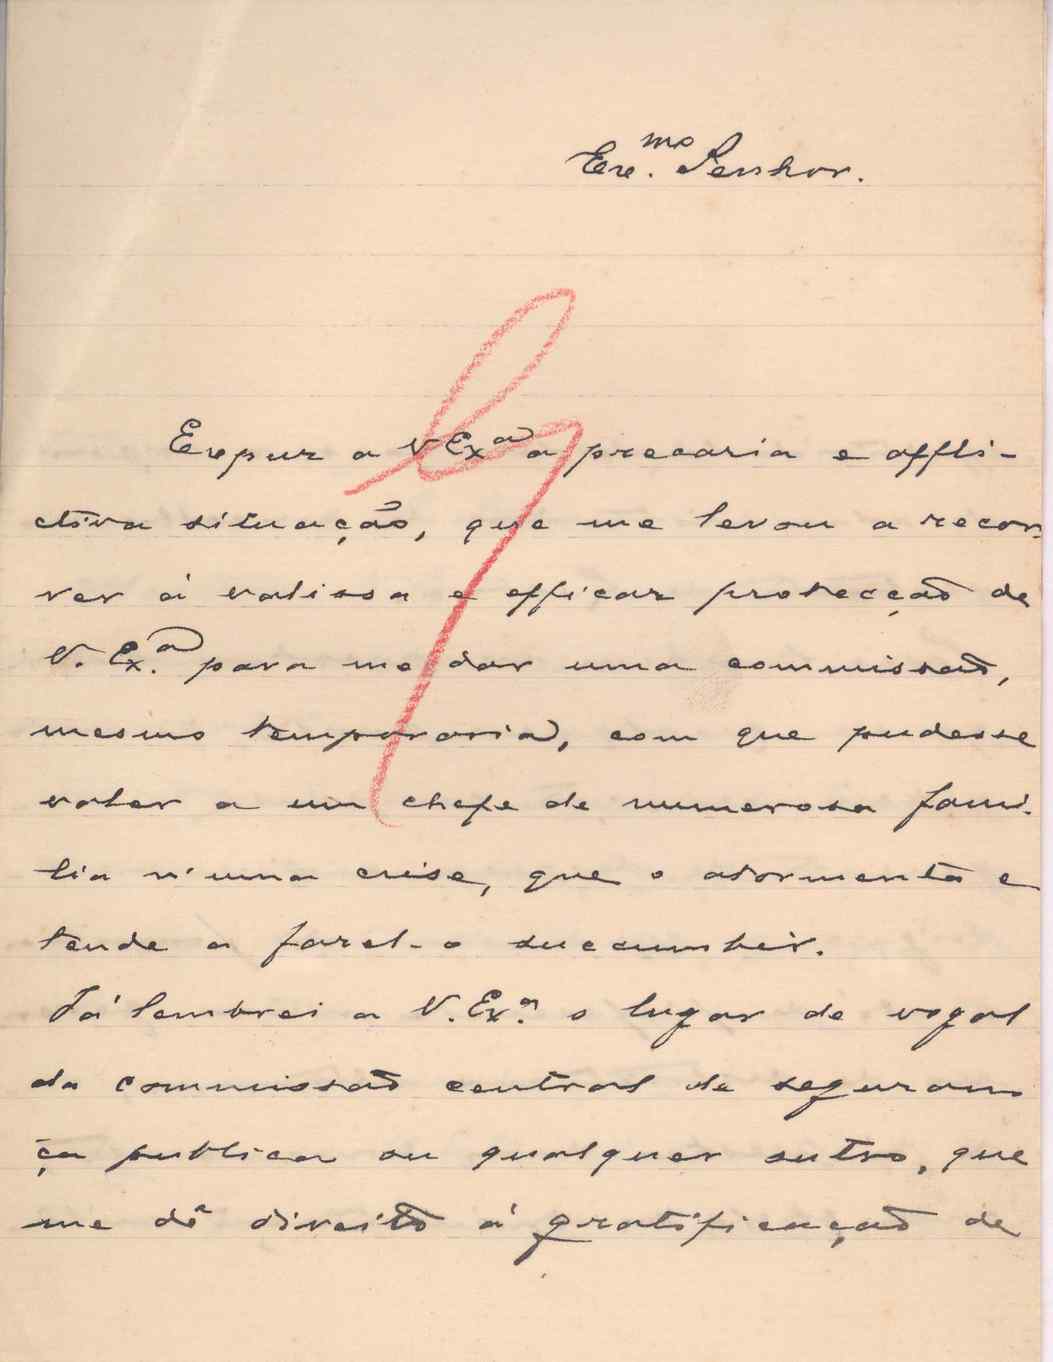 Exe.mo Senhor.
Expuz a V Exa a precaria e affli-
ctiva situação, que me levou a recor-
rer á valiosa e efficaz protecção de
V. Ex.a para me dar uma commissão,
mesmo temporaria, com que pudesse
valer a um chefe de numerosa fami-
lia n'uma crise, que o atormenta e
tende a fazel-o succumbir.
Já lembrei a V. Ex.a o lugar de vogal
da commissão central de seguran-
ça publica ou qualquer outro, que
me dê direito á gratificação de